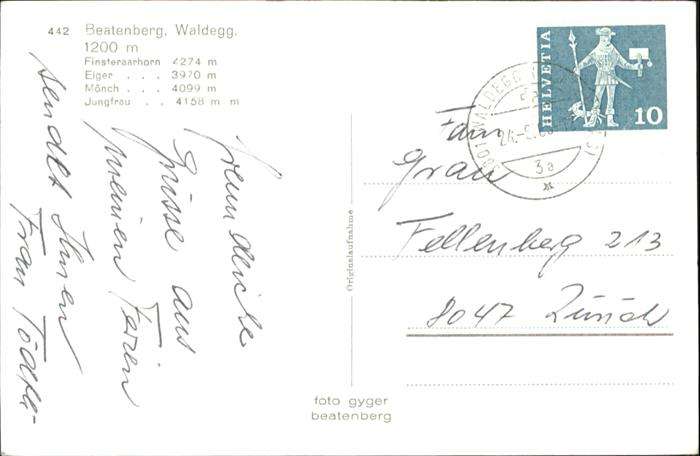 442 Beatenberg, Waldegg.
1200 m
Finsteraarhorn 4274 m
Eiger . . . 3970 m
Mönch . . . 4099 m
Jungfrau . . 4158 m m
freundliche
Grüsse aus
meinen Ferien
sendet Ihnen
Frau
Originalaufnahme
foto gyger
beatenberg
HELVETIA
10
WALDEGG
3a
Fam
Grau
Fellenberg 213
8047 Zürich